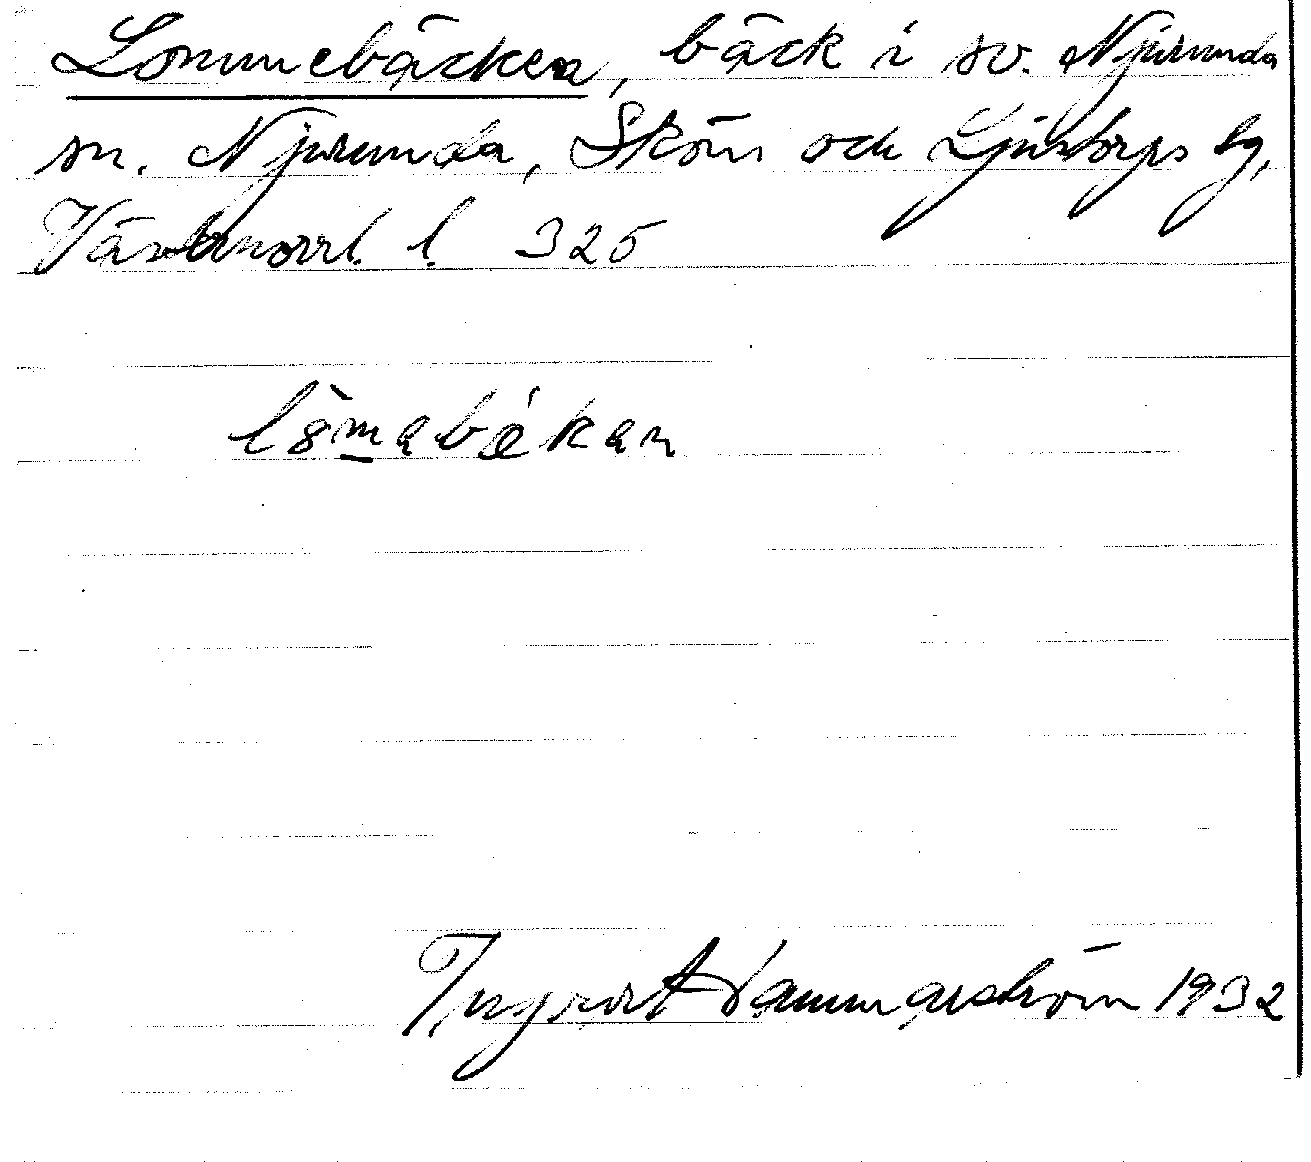 Lommebäcken, bäck i sv. Njurunda
sn. Njurunda, Sköns och Ljustorps tg,
Västernorrl. l. 325
Ingvart Hammarström 1932